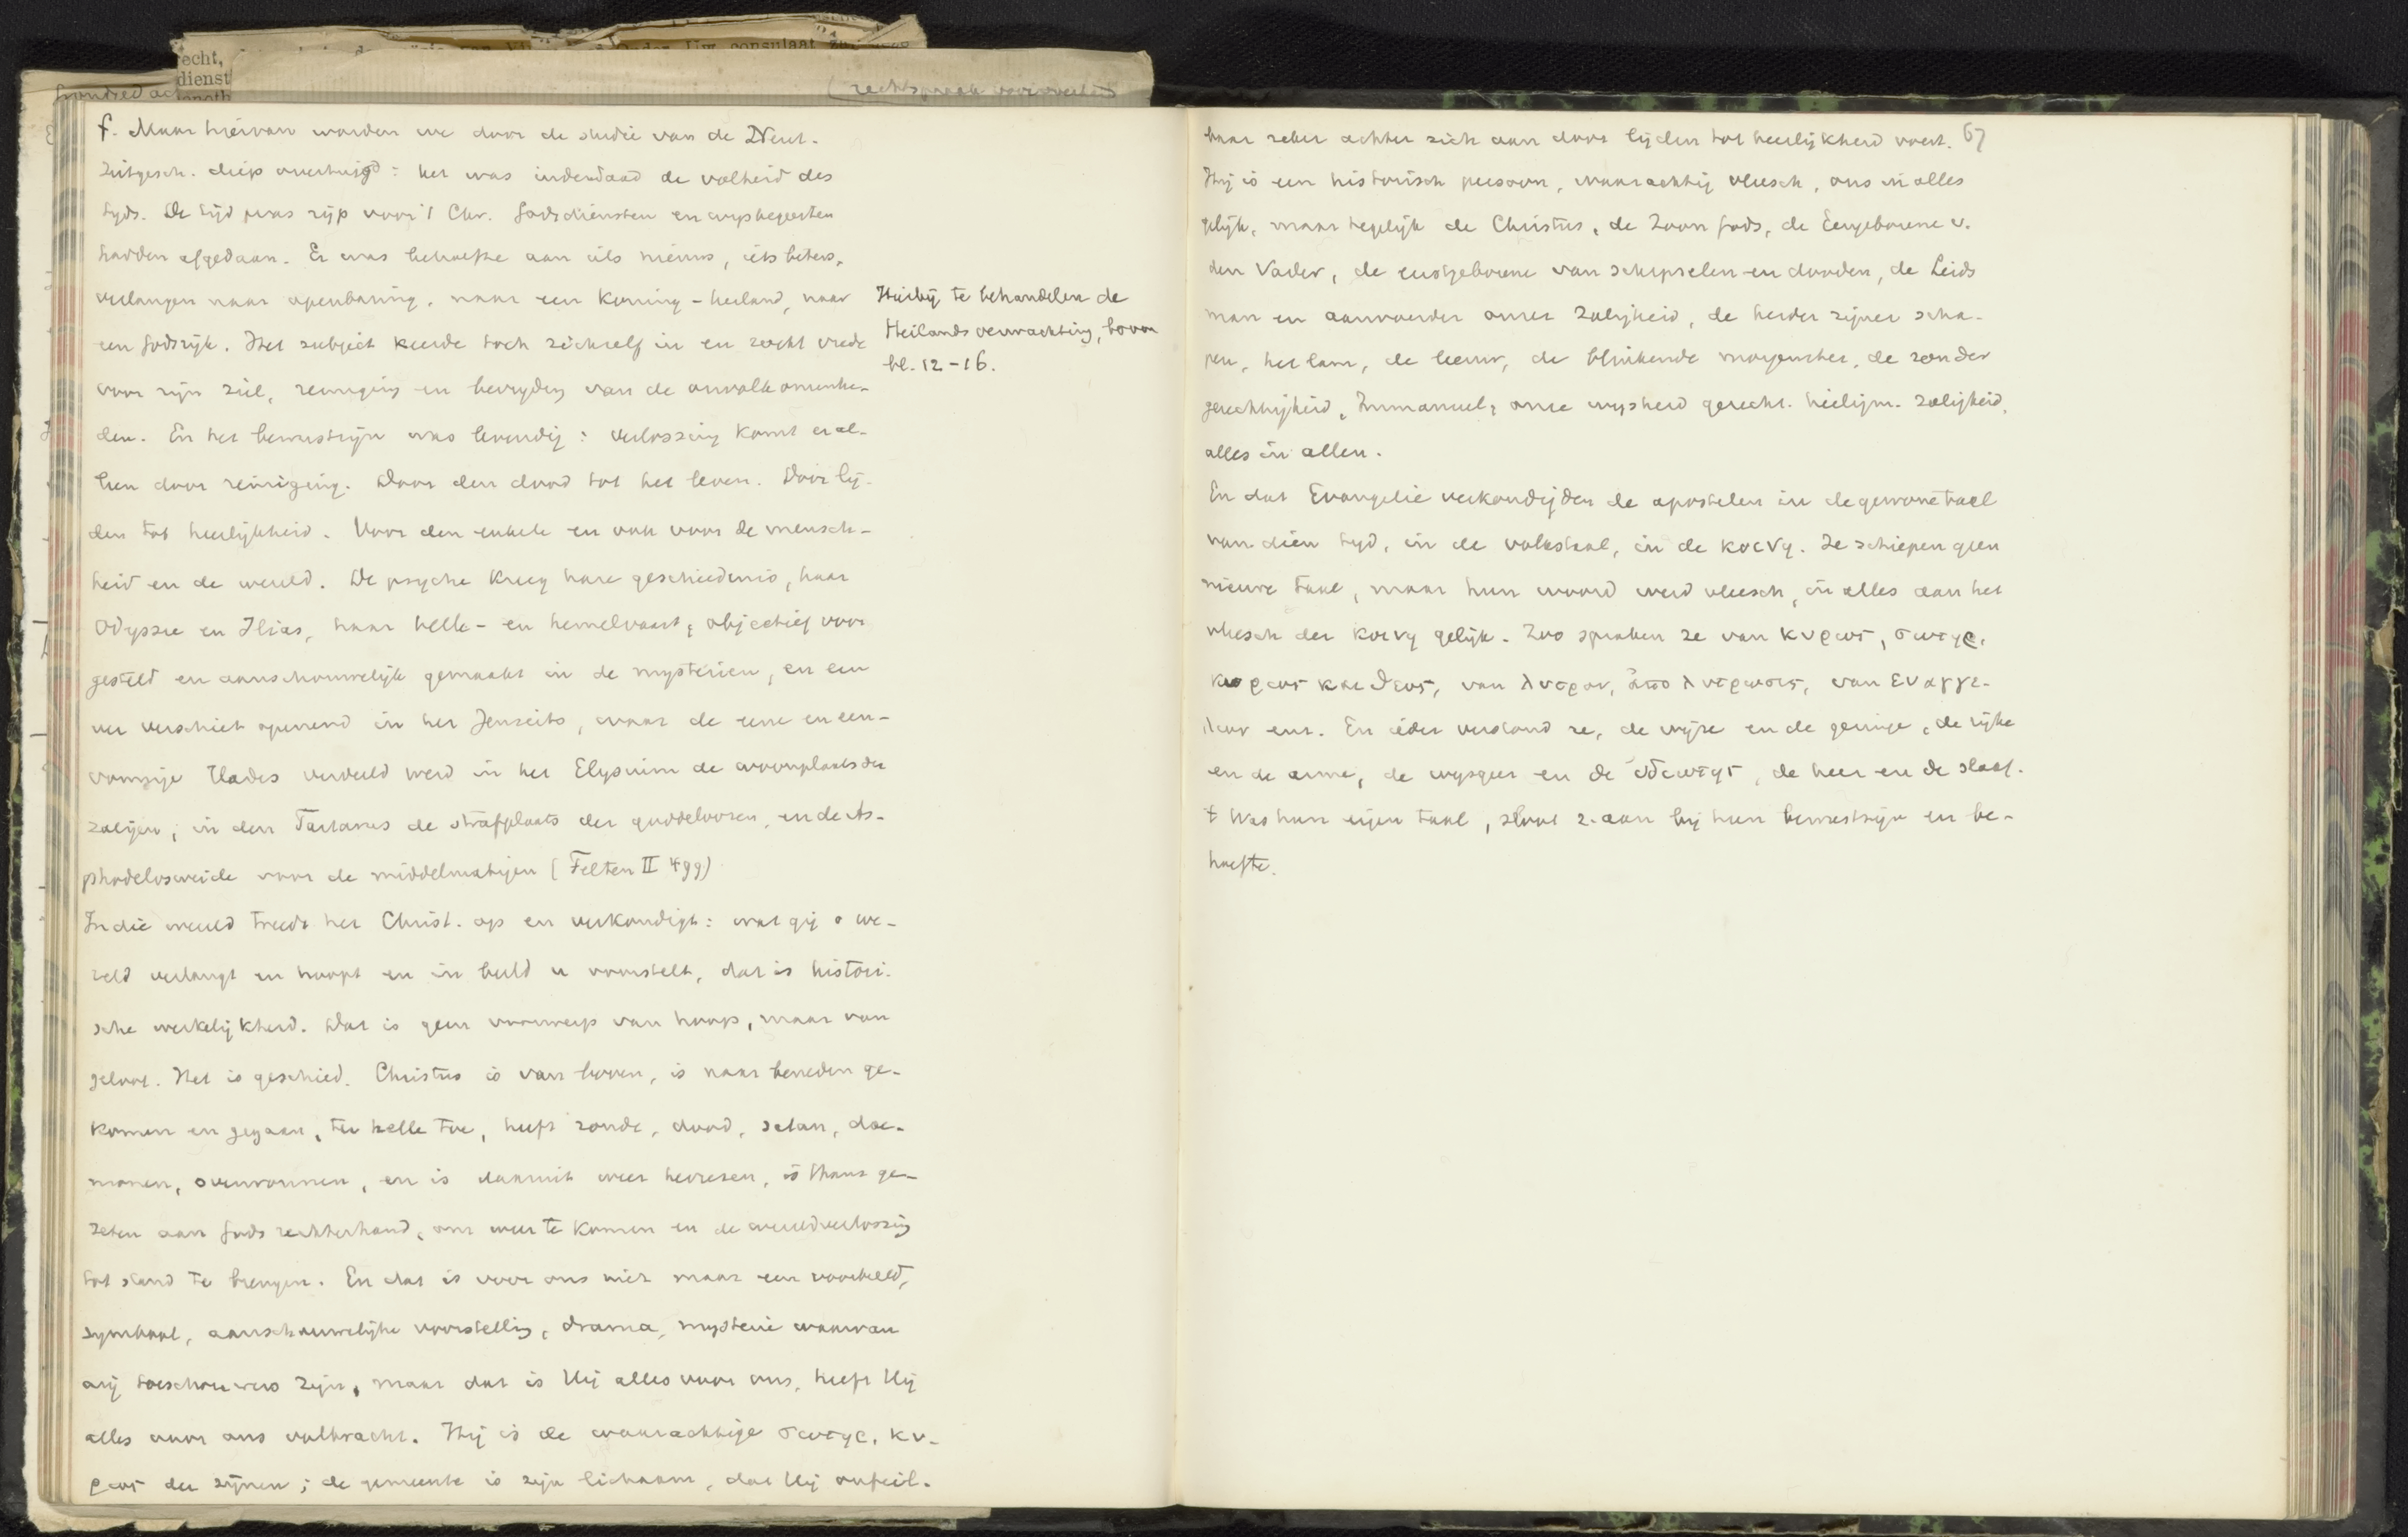 echt,
dienst
Uw consulaat
f. Maar hiervan worden we door de studie van de Neut.
Zeitgesch. diep overtuigd: het was inderdaad de volheid des
tyds. De tijd was rijp voor 't Chr. Godsdiensten en wysbegeerten
hadden afgedaan. Er was behoefte aan iets nieuws, iets beters,
verlangen naar openbaring, naar een Koning-heiland, naar
een Godsrijk. Het subject keerde toch zichzelf in en zocht vrede
voor zijn ziel, reiniging en bevryding van de onvolkomenhe-
den. En het bewustzijn was levendig: verlossing komt er al-
leen door reiniging. Door den dood tot het leven. Door lij-
den tot heerlijkheid. Voor den enkele en ook voor de mensch-
heid en de wereld. De psyche kreeg hare geschiedenis, haar
Odyssee en Ilias, haar helle- en hemelvaart, objectief voor
gesteld en aanschouwelijk gemaakt in de mysterien, en een
ver verschiet openend in het Jenseits, waar de eene en een-
vormige Hades verdeeld werd in het Elysium de woonplaats der
zaligen, in den Tartarus de strafplaats der goddeloozen, en de As-
phodelosweide voor de middelmatigen (Felten II 499)
In die wereld treedt het Christ. op en verkondigt: wat gij o we-
reld verlangt en hoopt en in beeld u voorstelt, dat is histori-
sche werkelijkheid. Dat is geen voorwerp van hoop, maar van
geloof. Het is geschied. Christus is van boven, is naar beneden ge-
komen en gegaan, ter helle toe, heeft zonde, dood, satan, dae-
monen, overwonnen, en is daaruit weer herrezen, is thans ge-
zeten aan Gods rechterhand, om weer te komen en de wereldverlossing
tot stand te brengen. En dat is voor ons niet maar een voorbeeld,
symbool, aanschouwelijke voorstelling, drama, mysterie waarvan
wij toeschouwers zijn, maar dat is Hij alles voor ons, heeft Hij
alles voor ons volbracht. Hij is de waarachtige σωτηρ, κυ-
ριος der zijnen; de gemeente is zijn lichaam, dat Hij onfeil-
Hierbij te behandelen de
Heilandsverwachting, boven
bl. 12-16.
67
baar zeker achter zich aan door lijden tot heerlijkheid voert.
Hij is een historisch persoon, waarachtig vleesch, ons in alles
gelijk, maar tegelijk de Christus, de Zoon Gods, de Eengeborene v.
den Vader, de eerstgeborene van schepselen en dooden, de Leids
man en aanvoerder onzer zaligheid, de herder zijner scha-
pen, het lam, de leeuw, de blinkende morgenster, de zon der
gerechtigheid, Immanuel, onze wysheid gerecht. heiligm. zaligheid,
alles in allen.
En dat Evangelie verkondigden de apostelen in de gewone taal
van dien tyd, in de volkstaal, in de κοινη. Ze schiepen geen
nieuwe taal, maar hun woord werd vleesch, in alles aan het
vleesch der κοινη gelijk. Zoo spraken ze van κυριος, σωτηρ,
κυριος και θεος, van λυτρον, ἀπολυτρωσις, van ευαγγε-
λιον enz. En ieder verstond ze, de wijze en de geringe, de rijke
en de arme, de wysgeer en de ἰδιωτης, de heer en de slaaf.
't Was hun eigen taal, sloot z. aan bij hun bewustzijn en be-
hoefte.